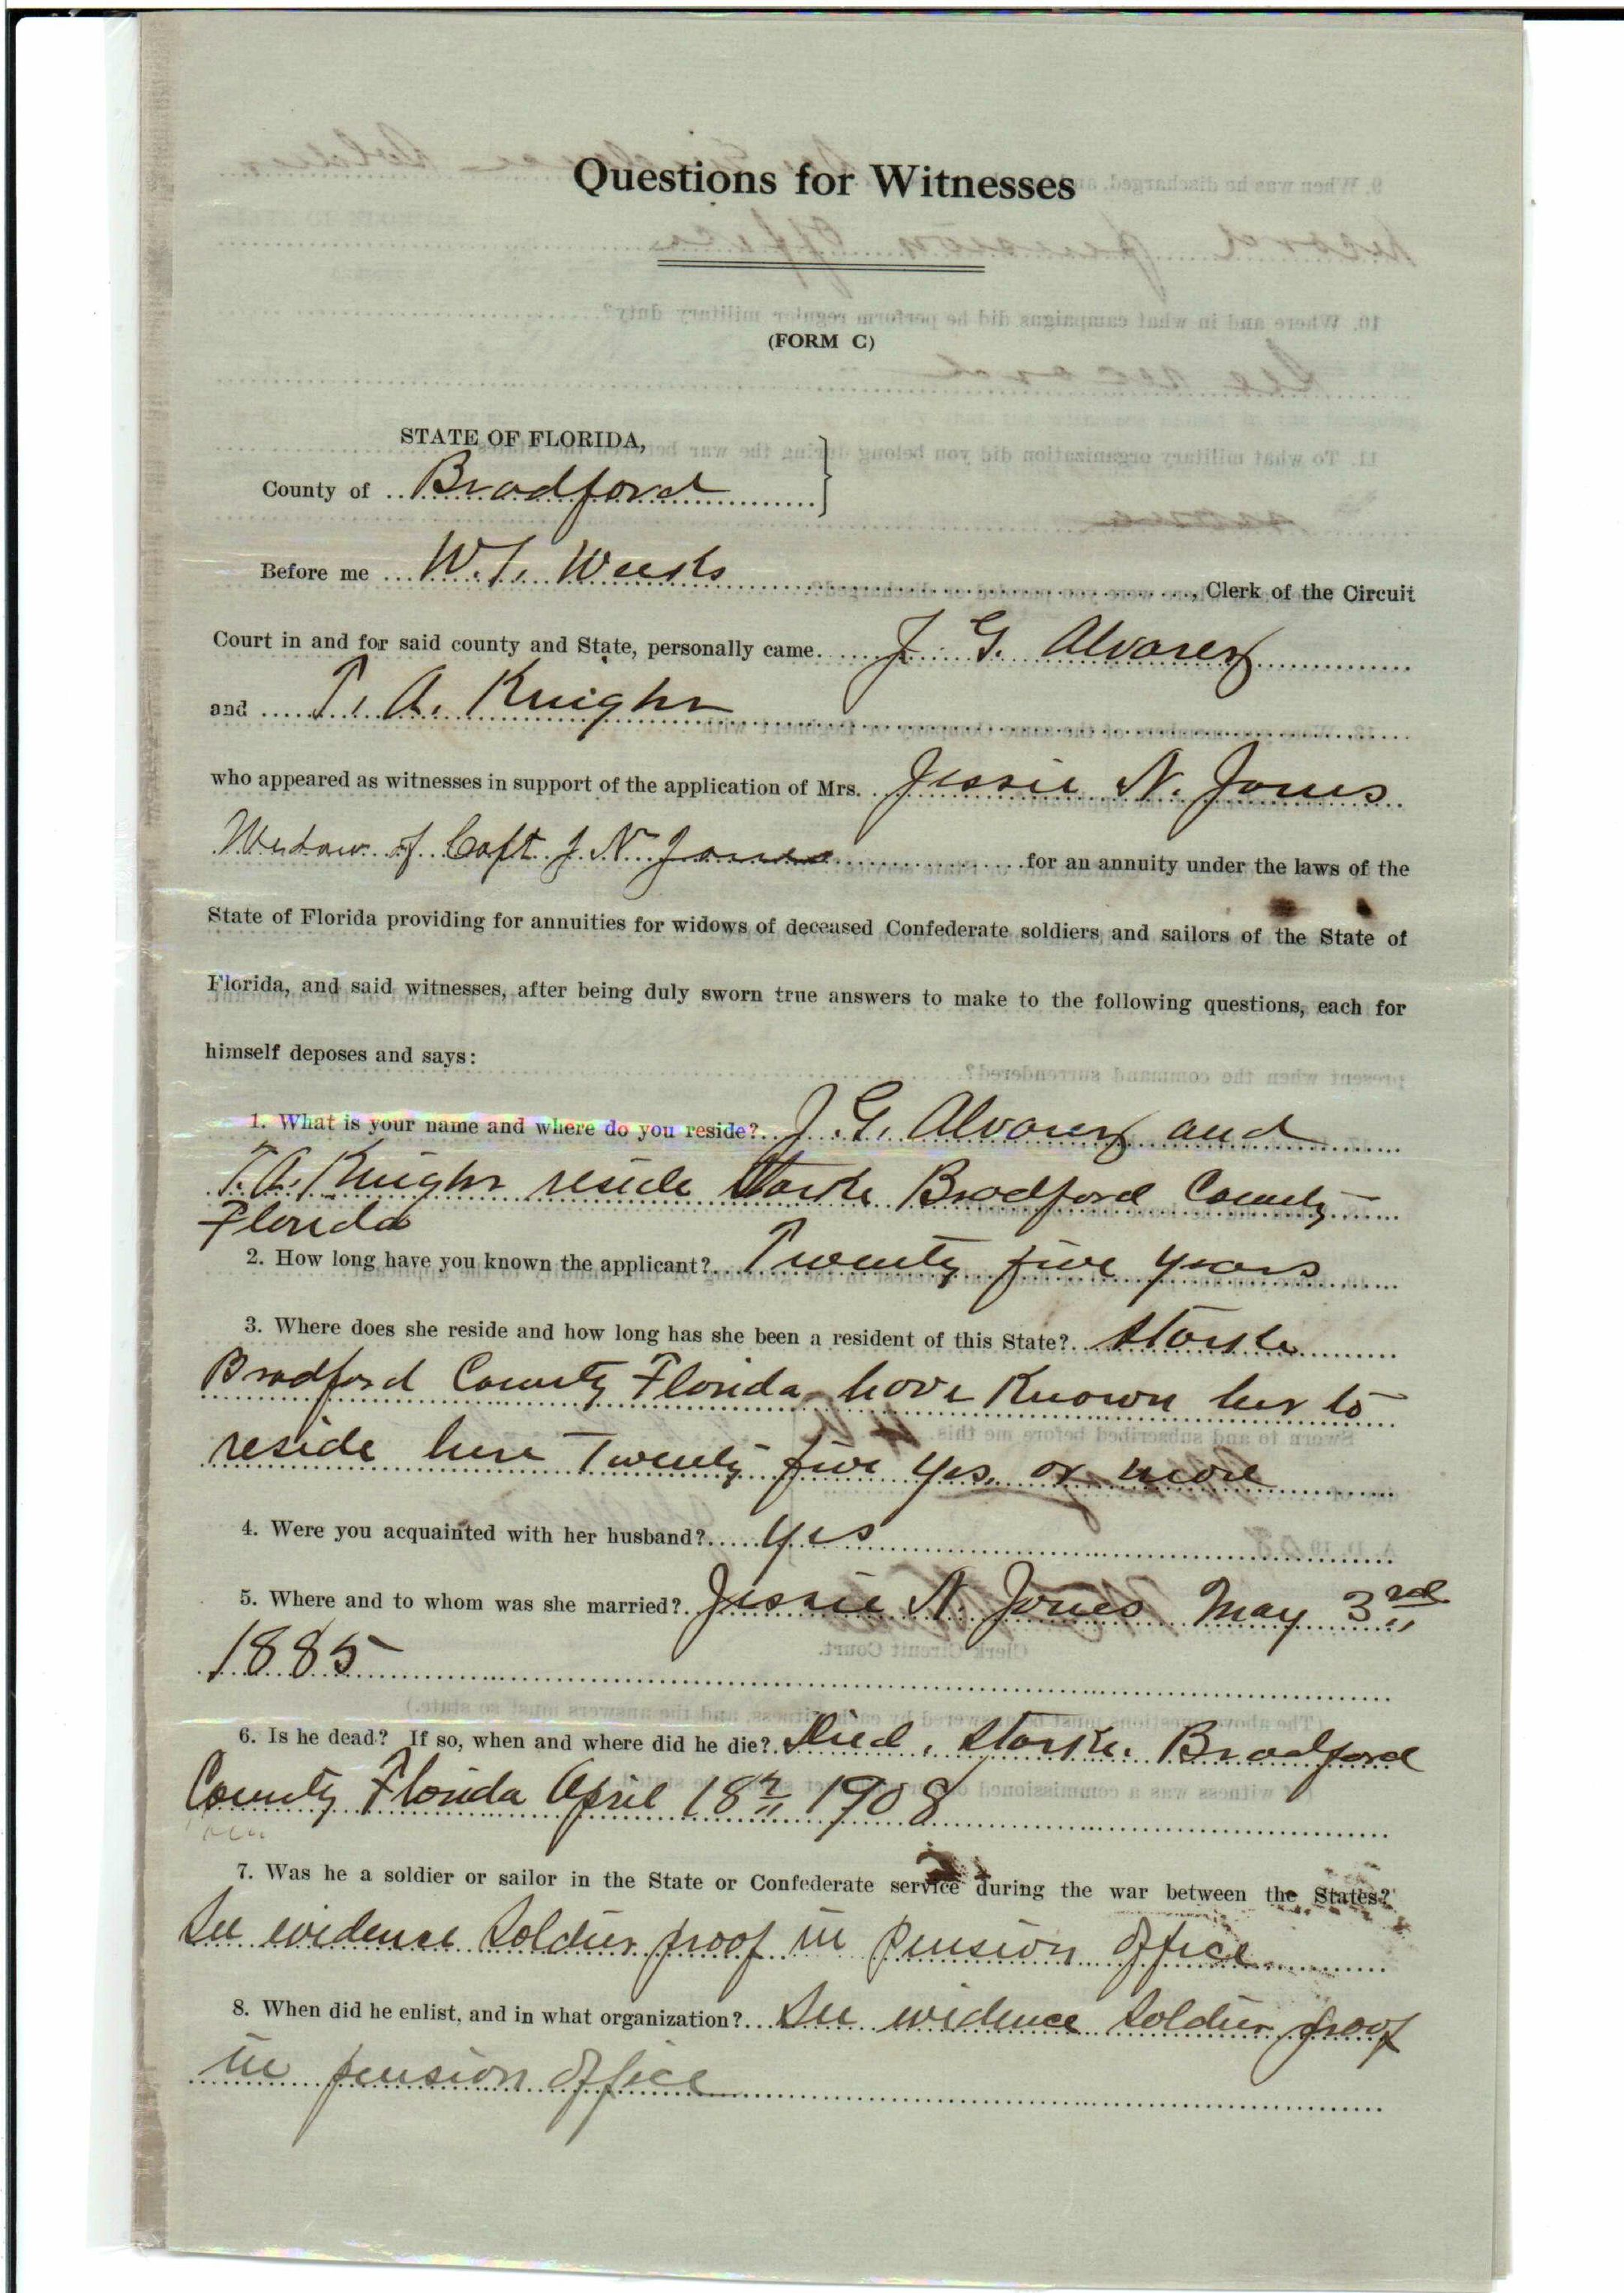 Questions for Witnesses
(FORM C)
STATE OF FLORIDA,
County of Bradford
Before me W. T. Weeks, Clerk of the Circuit
Court in and for said county and State, personally came J. G. Alvarez
and T. A. Knight
who appeared as witnesses in support of the application of Mrs. Jessie N. Jones
Widow of Capt J N Jones for an annuity under the laws of the
State of Florida providing for annuities for widows of deceased Confederate soldiers and sailors of the State of
Florida, and said witnesses, after being duly sworn true answers to make to the following questions, each for
himself deposes and says:
1. What is your name and where do you reside? J. G. Alvarez and
T. A. Knight reside Starke Bradford County
Florida
2. How long have you known the applicant? Twenty five years
3. Where does she reside and how long has she been a resident of this State? Starke
Bradford County Florida have Known her to
reside here Twenty five yrs. or more
4. Were you acquainted with her husband? yes
5. Where and to whom was she married? Jessie N. Jones May 3rd
1885
6. Is he dead? If so, when and where did he die? Died, Starke. Bradford
County Florida April 18th 1908
7. Was he a soldier or sailor in the State or Confederate service during the war between the States?
See evidence Soldier proof in pension office
8. When did he enlist, and in what organization? See evidence Soldier proof
in pension office